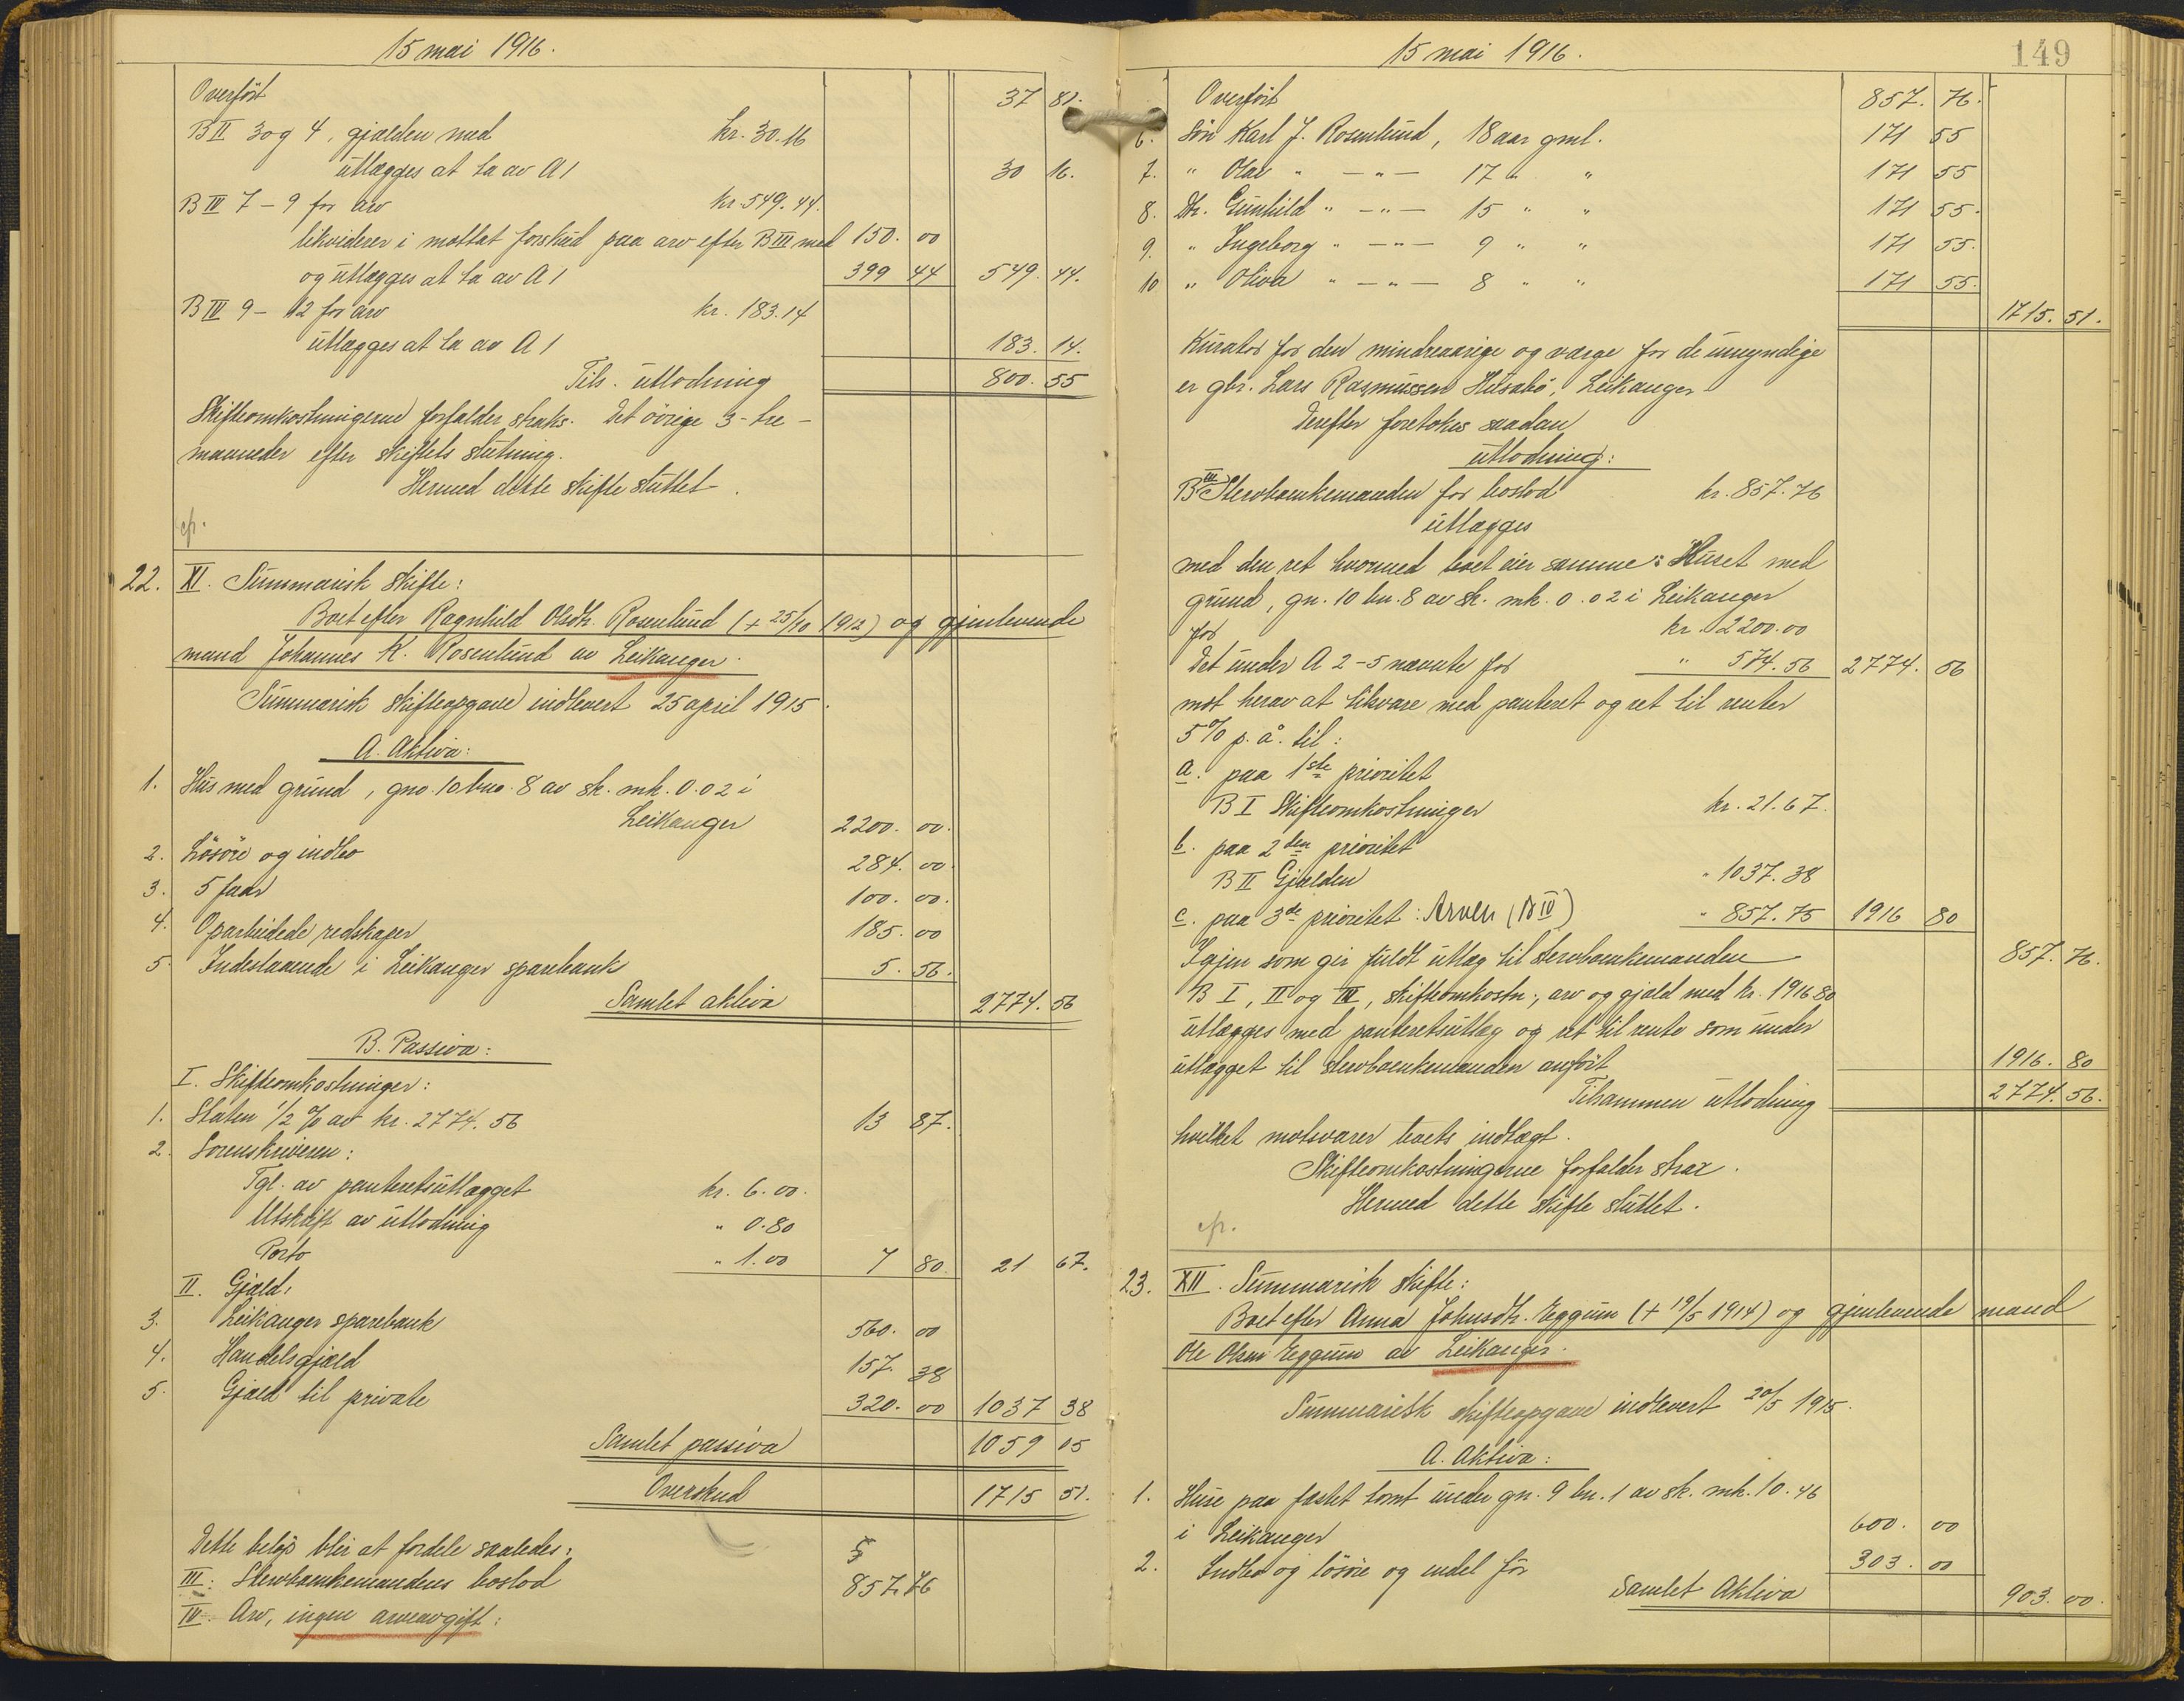 15 mai 1916.
Overført 37 81.
B II 3 og 4, gjælden med kr. 30.16
utlægges at ta av A 1 30 16.
B IV 7 - 9 for arv kr. 549.44.
likviderer i mottat forskud paa arv efter B III med 150. 00
og utlægges at ta av A 1 399 44 549. 44.
B IV 9 - 12 for arv kr. 183.14
utlægges at ta av A 1 183. 14.
Tils. utlodning 800. 55
Skifteomkostningerne forfalder straks. Det övrige 3 - tre -
maaneder efter skiftets slutning.
Hermed dette skifte sluttet.
cfr.
22. XI. Summarisk skifte:
Boet efter Ragnhild Olsdtr. Rosenlund (+ 25/10 1912) og gjenlevende
mand Johannes K. Rosenlund av Leikanger.
Summarisk skifteopgave indlevert 25 april 1915.
A. Aktiva:
1. Hus med grund, gno. 10 bno. 8 av sk. mk. 0.02 i
Leikanger 2200. 00.
2. Lösöre og indbo 284. 00.
3. 5 faar 100. 00.
4. Oparbeidede redskaper 185. 00
5. Indestaaende i Leikanger sparebank 5. 56.
Samlet aktiva 2774. 56
B. Passiva:
I. Skifteomkostninger:
1. Staten 1/2 % av kr. 2774.56 13 87.
2. Sorenskriveren:
Tgl. av panteretsutlægget kr. 6.00.
Utskrift av utlodning " 0.80
Porto " 1.00 7 80 21 67.
II. Gjæld:
3. Leikanger sparebank 560. 00
4. Handelsgjæld 157. 38
5. Gjæld til private 320. 00 1037 38
Samlet passiva 1059 05
Overskud 1715 51.
Dette beløp blir at fordele saaledes:
III: Stervboenkemandens boslod 857. 76
IV. Arv, ingen arveavgift:
15 mai 1916.
149
Overført 857. 76.
6. Sön Karl J. Rosenlund, 18 aar gml. 171 55
7. " Olav " - " - 17 " " 171 55
8. Dtr. Gunhild " - " - 15 " " 171 55.
9. " Ingeborg " - " - 9 " " 171 55.
10 " Oliva " - " - 8 " " 171 55.
1715. 51.
Kurator for den mindreaarige og værge for de umyndige
er gbr. Lars Rasmussen Husabö, Leikanger
Derefter foretokes saadan
utlodning:
B III Stervboenkemanden for boslod kr. 857.76
utlægges
med den ret hvormed boet eier samme: Huset med
grund, gn. 10 bn. 8 av sk. mk. 0.02 i Leikanger
for kr. 2200.00
Det under A 2 - 5 nævnte for " 574.56 2774. 56
mot herav at tilsvare med panteret og ret til renter
5% p. å. til:
a. paa 1ste prioritet
B I Skifteomkostninger kr. 21.67.
b. paa 2den prioritet
B II Gjælden " 1037.38
c. paa 3de prioritet: Arven (B IV) " 857.75 1916 80
Igjen som gir fuldt utlæg til stervboenkemanden 857. 76.
B I, II og IV, skifteomkostn., arv og gjæld med kr. 1916.80
utlægges med panteretsutlæg og ret til rente som under
utlægget til stervboenkemanden anført 1916. 80
Tilsammen utlodning 2774. 56.
hvilket motsvarer boets indtægt.
Skifteomkostningerne forfalder strax.
Hermed dette skifte sluttet.
cfr.
23. XII. Summarisk skifte:
Boet efter Anna Johnsdtr. Eggum (+ 19/5 1914) og gjenlevende mand
Ole Olsen Eggum av Leikanger.
Summarisk skifteopgave indlevert 20/5 1915.
A. Aktiva:
1. Huse paa fæstet tomt under gn. 9 bn. 1 av sk. mk. 10.46
i Leikanger 600. 00
2. Indbo og lösöre og endel för 303. 00
Samlet Aktiva 903. 00.